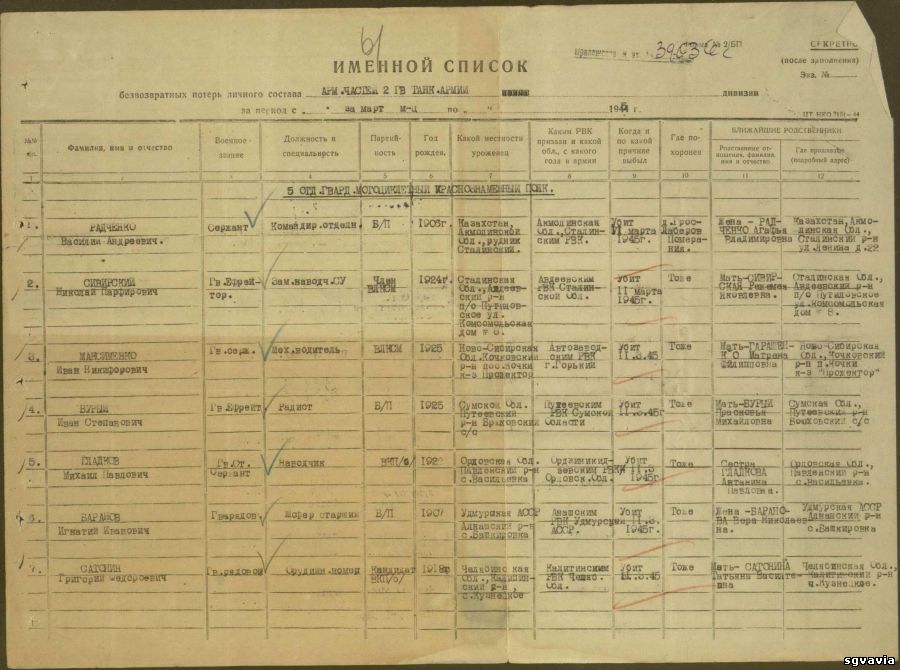 61
Форма № 2/БП
СЕКРЕТНО
(после заполнения)
Экз. №
ИМЕННОЙ СПИСОК
безвозвратных потерь личного состава АРМ.ЧАСТЕЙ 2 ГВ ТАНК.АРМИИ дивизии
за период с " за март м-ц по " 1945 г.
№№ Фамилия, имя и отчество Военное звание Должность и специальность Партийность Год рожден. Какой местности уроженец Каким РВК призван и какой обл., с какого года в армии Когда и по какой причине выбыл Где похоронен БЛИЖАЙШИЕ РОДСТВЕННИКИ
Родственные отношения, фамилия, имя и отчество Где проживают (подробный адрес)
1 2 3 4 5 6 7 8 9 10 11 12
5 ОТД.ГВАРД.МОТОЦИКЛЕТНЫЙ КРАСНОЗНАМЕННЫЙ ПОЛК.
1. РАДЧЕНКО Сержант Командир.отделн. Б/П Казахстан, Акмолинская Убит д.Грос- Жена - РАД- Казахстан, Акмо-
Василий Андреевич. Акмолинской Обл.,Сталин- марта ЧЕНКО Агафья линская Обл.,
Обл.,рудник ским РВК. 1945г. Помера- Владимировна Сталинский р-н
Сталинский. ния. ул.Ленина д.22
2. СИВИРСКИЙ Гв.Ефрей- Зам.наводч.СУ Член 1924г. Сталинская Авдеевским Убит Тоже Мать-СИВИР- Сталинская Обл.,
Николай Парфирович тор. ВЛКСМ Обл.,Авдеев- РВК Сталин- 11 марта СКАЯ Авдеевский р-н
ский р-н ской Обл. 1945г. Яковлевна. п/о Путиловское
п/о Путилов- ул.Комсомольская
ское ул. дом № 8.
Комсомольская
дом № 8.
3. МАКСИМЕНКО Гв.серж. Мех.водитель ВЛКСМ 1925 Ново-Сибирская Автозавод- Убит Тоже Ново-Сибирская
Иван Никифорович Обл.Кочковский ским РВК 11.3.45 Матрена Обл.,Кочковский
р-н пос.Кочки г.Горький Филипповна р-н п.Кочки
к-з Прожектор к-з "Прожектор"
4. БУРЫЙ Гв.Ефрейт. Радист Б/П 1925 Сумской Обл. Путеевским Убит Тоже Мать-БУРЫЙ Сумская Обл.,
Иван Степанович Путеевский РВК Сумской 11.3.45г Прасковья Путеевский р-н
р-н области Михайловна с/с
с/с
5. ГЛАДКОВ Гв.Ст. Наводчик ВКП/б/ Орловская Обл. Орджиникид- Убит Тоже Сестра Орловская Обл.,
Михаил Павлович Сержант р-н зевским РВК 11.3 ГЛАДКОВА р-н
с.Васильевка. Орловск.Обл. 1945г Антанина с.Васильевка.
Павловна.
6. БАРАНОВ Гв.рядов. Шофер старший Б/П 1907 Удмурская АССР Убит Тоже Жена -БАРАНО- Удмурская АССР
Игнатий Иванович р-н РВК Удмурской 11.3. ВА Вера Николаев- р-н
с.Башкировка АССР. 1945г. на. с.Башкировка
7. САТОНИН Гв.рядовой Орудийн.номер Кандидат Челябинская Калитинским Убит Тоже Мать- САТОНИНА Челябинская Обл.,
Григорий Федорович ВКП/б/ РВК 11.3.45 Татьяна р-н
с.Кузнецкое Обл. с.Кузнецкое.
sgvavia